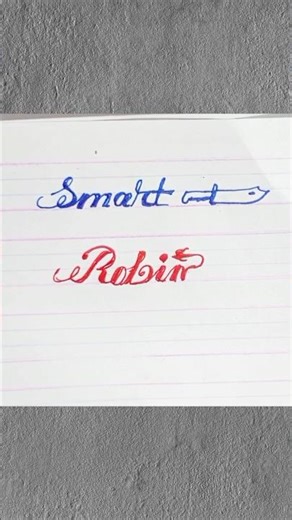 Smart
Robin